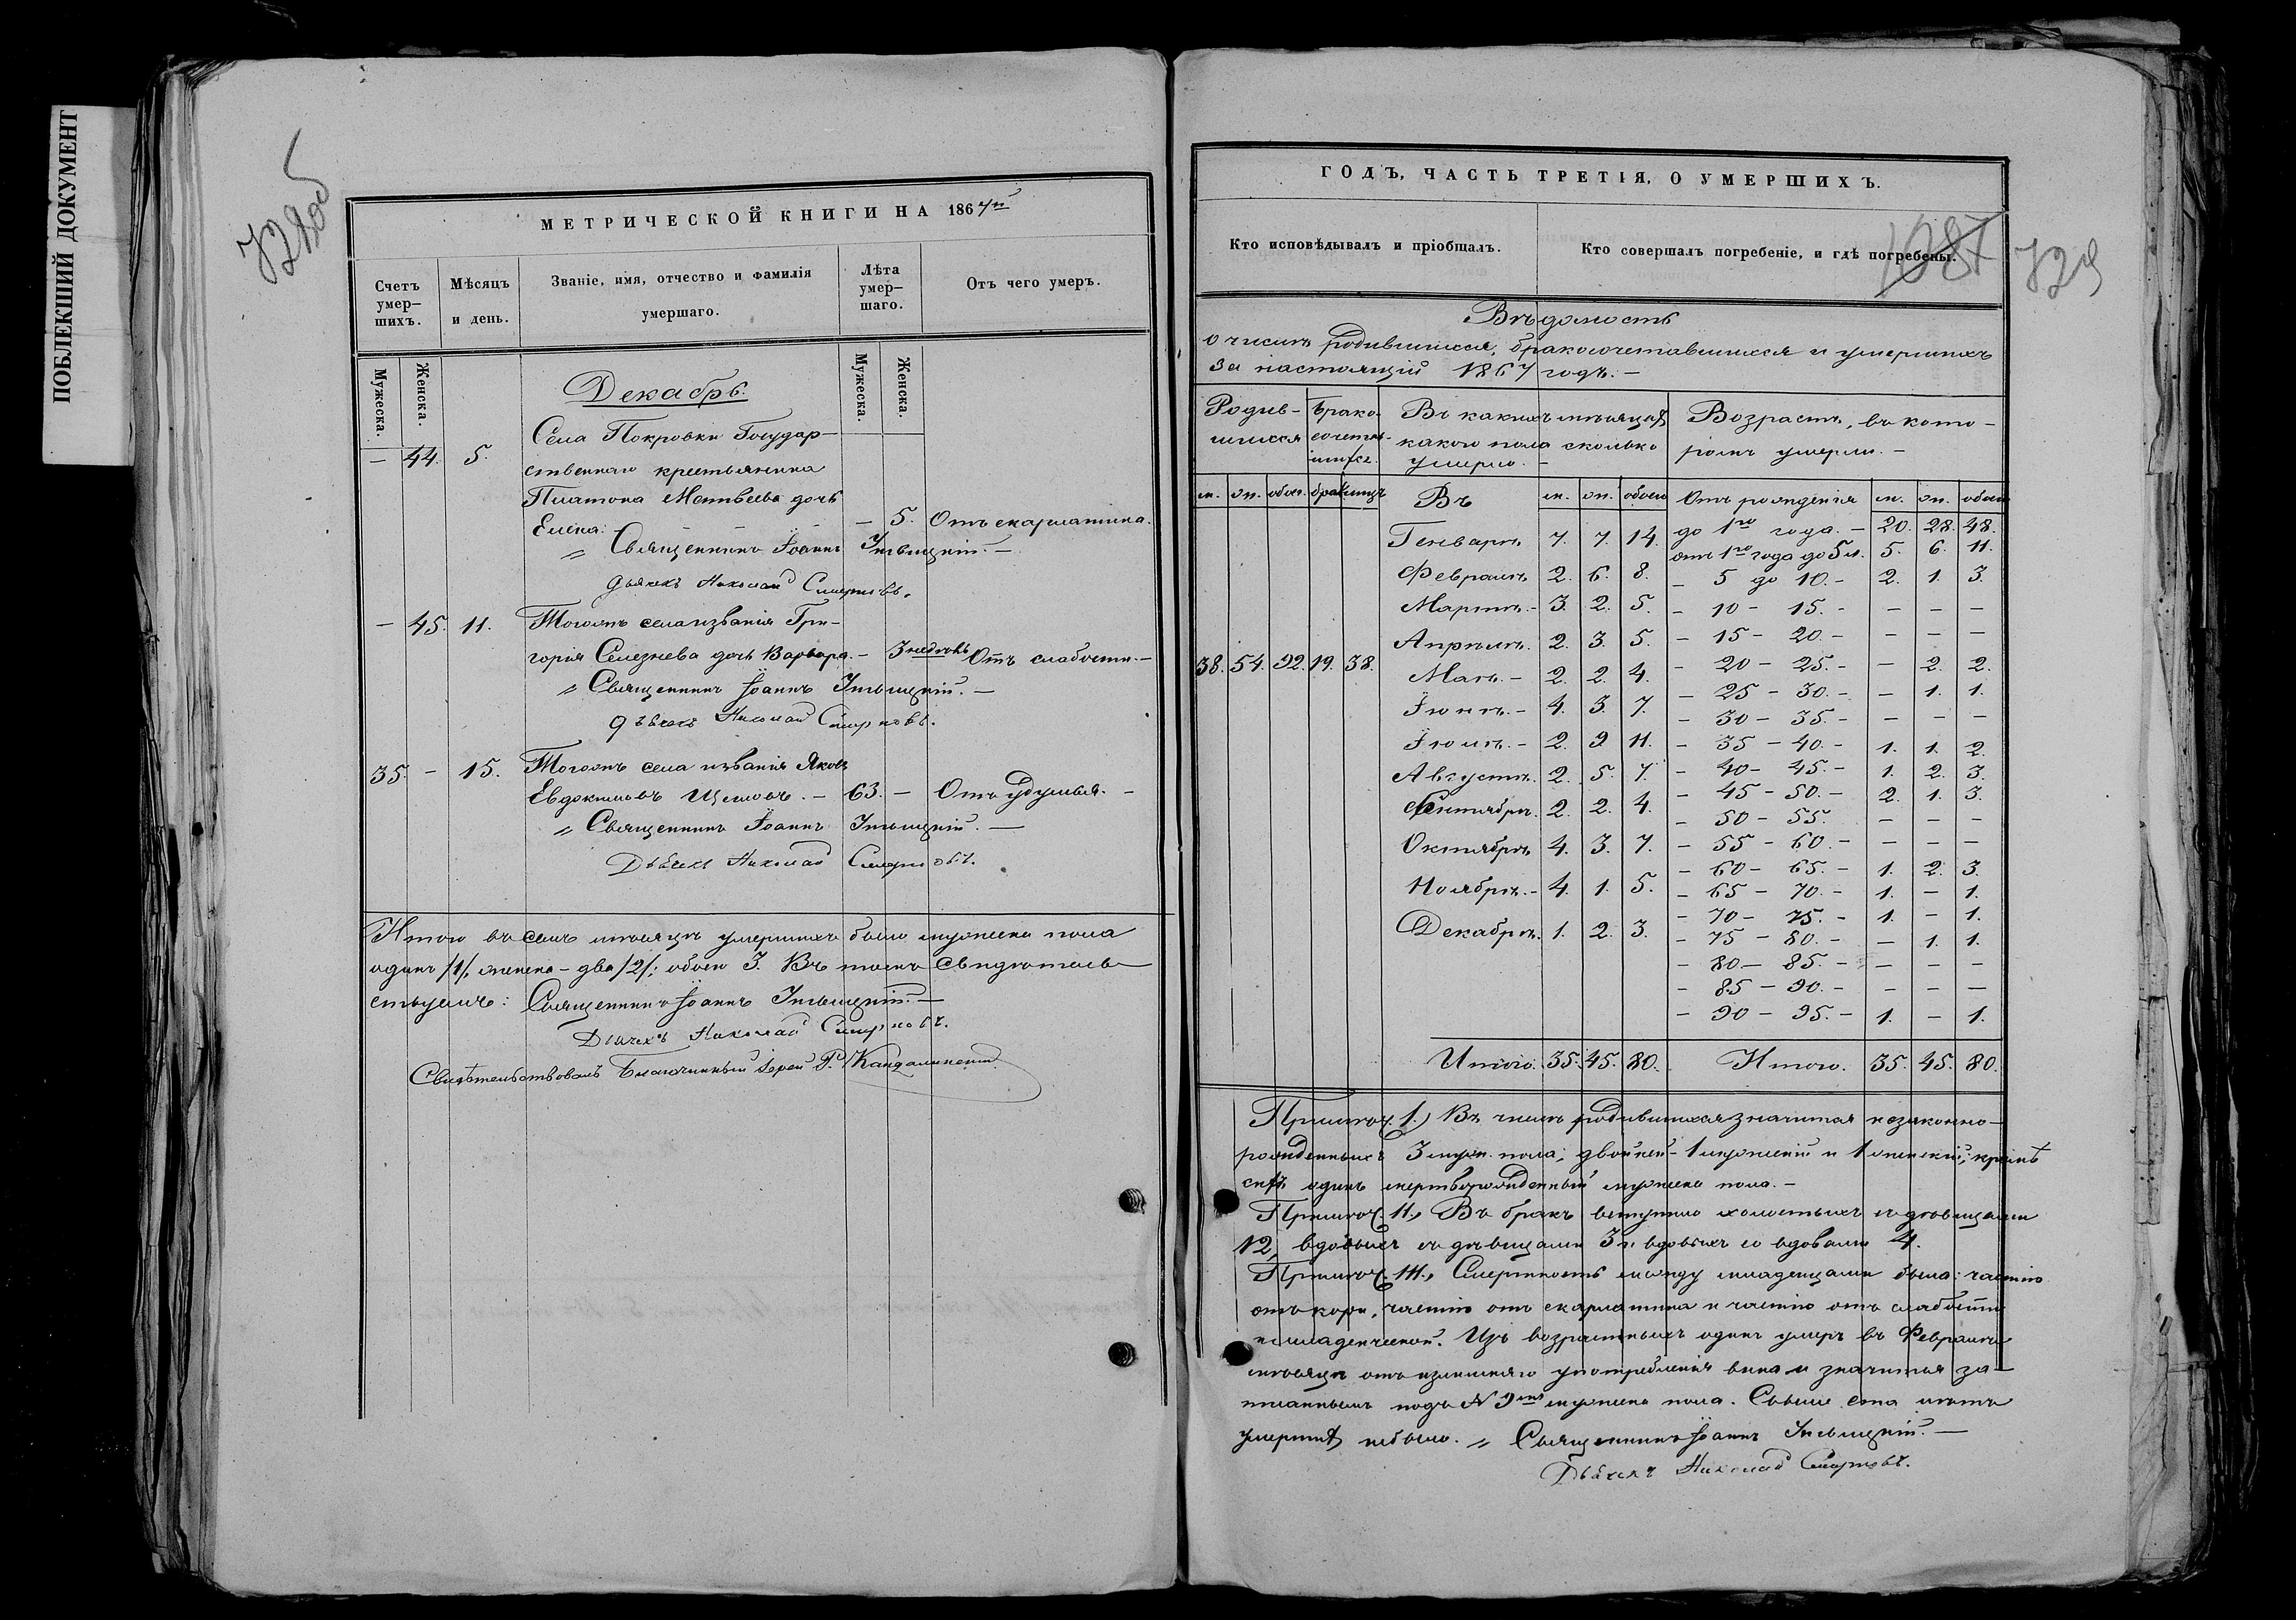 ПОБЛЕКШИЙ ДОКУМЕНТ
728об
МЕТРИЧЕСКОЙ КНИГИ НА 1867й
Счетъ умер-шихъ.
Мѣсяцъ и день.
Званіе, имя, отчество и фамилія умершаго.
Лѣта умер-шаго.
Отъ чего умеръ.
Мужеска. Женска. Мужеска. Женска.
Декабрь.
Села Покровки Государ-
— 44. 5. ственнаго крестьянина
Платона Матвѣева дочь
Елена. — 5. Отъ скарлатина.
〃 Священникъ Іоаннъ
дьячекъ Николай Смирновъ.
— 45. 11. Тогожъ села и званія Гри-
горія Селезнева дочь Варвара. — 3 недѣль Отъ слабости. —
〃 Священникъ Іоаннъ
дьячекъ Николай Смирновъ.
35. — 15. Тогожъ села и званія Яковъ
Евдокимовъ — 63. — Отъ удушья. —
〃 Священникъ Іоаннъ
Дьячекъ Николай Смирновъ.
Итого въ семъ мѣсяцѣ умершихъ было мужеска пола
одинъ /1/, женска – два /2/; обоего 3. Въ томъ свидѣтель-
ствуемъ: Священникъ Іоаннъ
Дьячекъ Николай Смирновъ.
Свидѣтельствовалъ Благочинный Іерей Р. Кандалинский
ГОДЪ, ЧАСТЬ ТРЕТІЯ, О УМЕРШИХЪ.
Кто исповѣдывалъ и пріобщалъ.
Кто совершалъ погребеніе, и гдѣ погребены.
1087 729
Вѣдомость
о числѣ родившихся, бракосочетавшихся и умершихъ
за настоящій 1867 годъ. —
Родив-шихся
Брако-сочетав-шихся.
Въ какихъ мѣсяцахъ какого пола сколько умерло. —
Возрастъ, въ кото-ромъ умерли. —
м. ж. обоег. брак. лицъ Въ м. ж. обоего Отъ рожденія м. ж. обоего
38. 54. 92. 19. 38.
Генварѣ 7. 7. 14.
Февралѣ 2. 6. 8.
Мартѣ. — 3. 2. 5.
Апрѣлѣ. 2. 3. 5.
Маѣ. — 2. 2. 4.
Іюнѣ. — 4. 3. 7.
Іюлѣ. — 2. 9 11.
Августѣ. 2. 5. 7.
Сентябрѣ. 2. 2. 4.
Октябрѣ 4. 3. 7.
Ноябрѣ. — 4. 1. 5.
Декабрѣ. 1. 2. 3.
Итого. 35. 45. 80.
до 1го года. — 20. 28. 48.
отъ 1го года до 5 л. 5. 6. 11.
— 5 до 10. — 2. 1. 3.
— 10 — 15. — — — —
— 15 — 20. — — — —
— 20 — 25. — — 2. 2.
— 25 — 30. — — 1. 1.
— 30 — 35. — — — —
— 35 — 40. — 1. 1. 2.
— 40 — 45. — 1. 2. 3.
— 45 — 50. — 2. 1. 3.
— 50 — 55. — — —
— 55 — 60. — — — —
— 60 — 65. — 1. 2. 3.
— 65 — 70. — 1. — 1.
— 70 — 75. — 1. — 1.
— 75 — 80. — — 1. 1.
— 80 — 85. — — — —
— 85 — 90. — — — —
— 90 — 95. — 1. — 1.
Итого. 35. 45. 80.
Примѣч. 1.) Въ числѣ родившихся значится незаконно-
рожденныхъ 3 муж. пола; двойней – 1 мужеский и 1 женский; кромѣ
сихъ одинъ мертворожденный мужеска пола. —
Примѣч. 11., Въ бракъ вступило холостыхъ съ дѣвицами
12, вдовыхъ съ дѣвицами 3 и вдовыхъ со вдовами 4.
Примѣч. 111., Смертность между младенцами была: частію
отъ кори, частію отъ скарлатина и частію отъ слабости
младенческой. Изъ возрастныхъ одинъ умеръ въ Февралѣ
мѣсяцѣ отъ излишняго употребленія вина и значится за-
писаннымъ подъ № 9мъ мужеска пола. Свыше ста лѣтъ
умершихъ небыло. 〃 Священникъ Іоаннъ
Дьячекъ Николай Смирновъ.